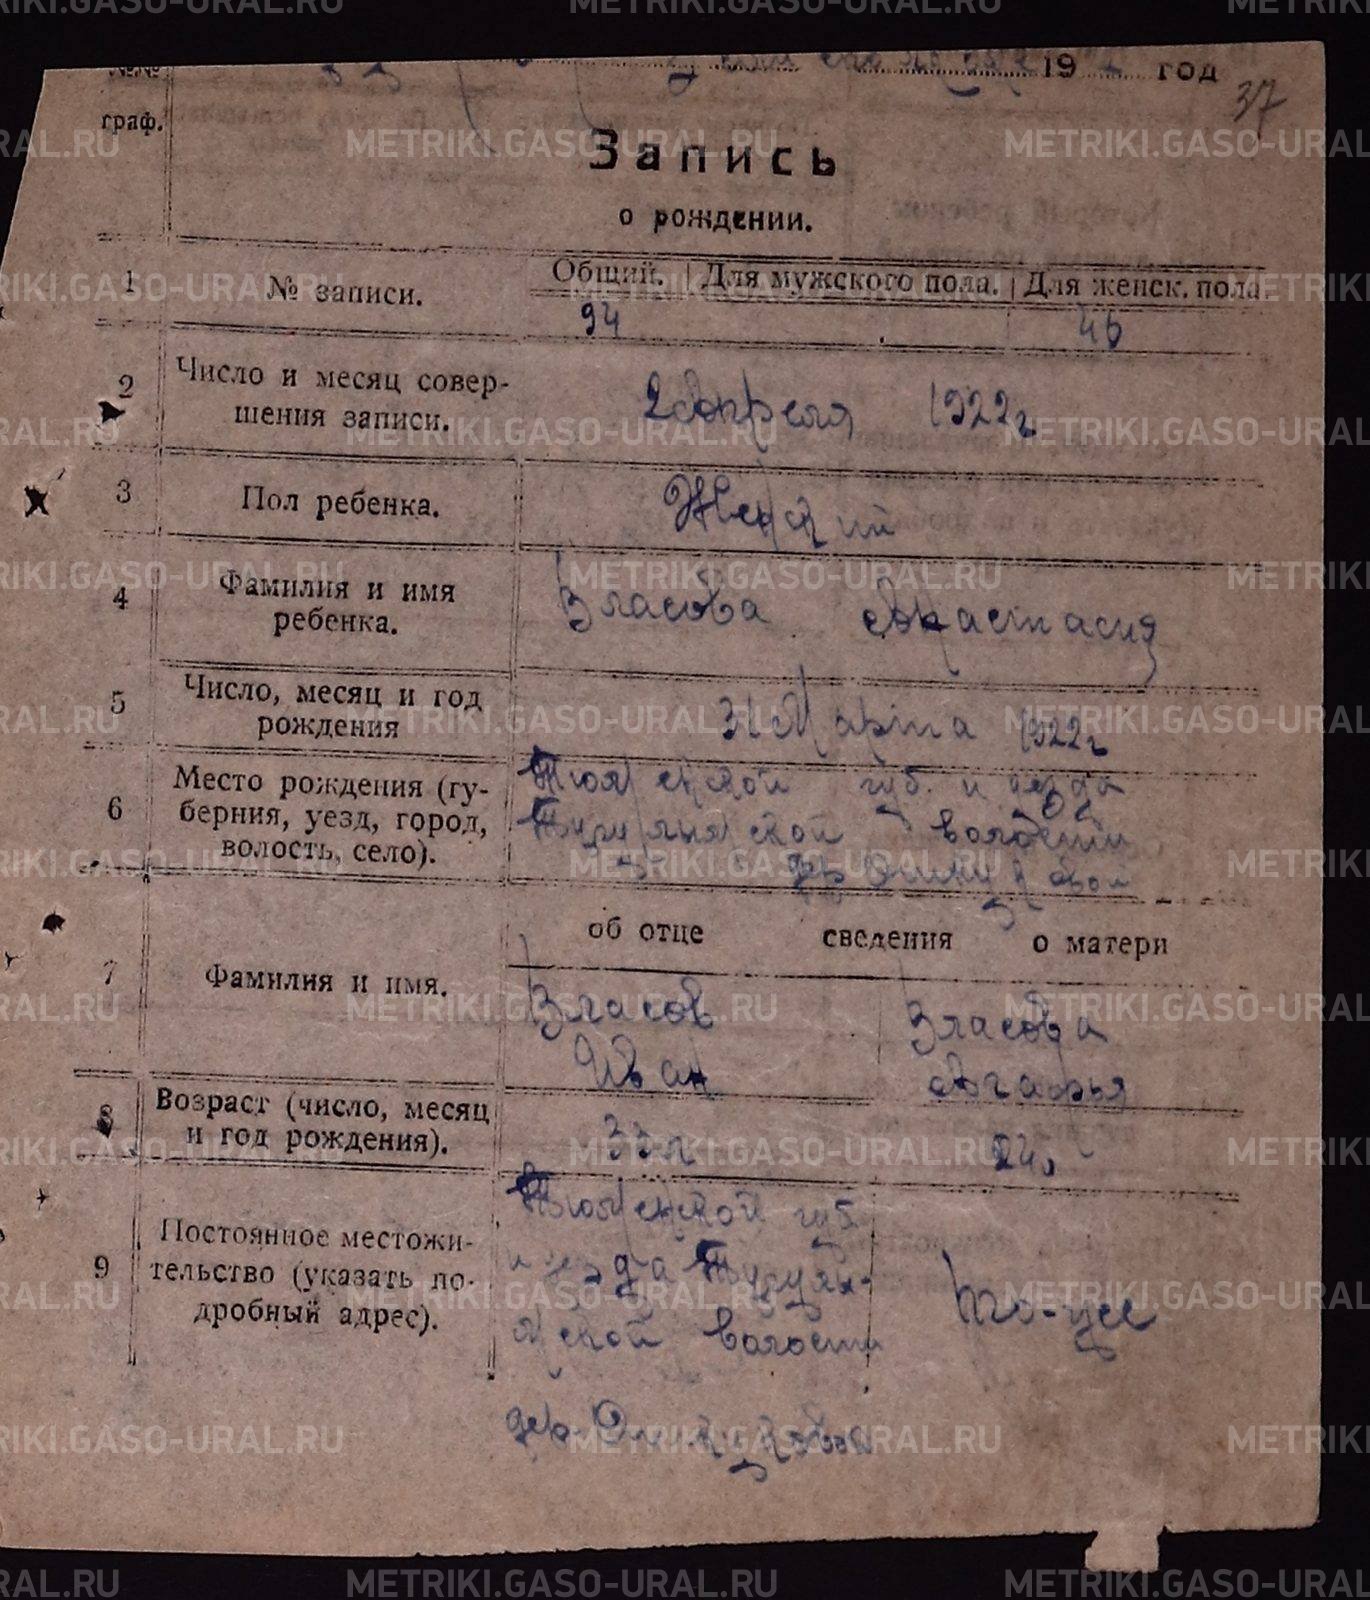 №№ 19 2 год
граф. 37
Запись
о рождении.
1 № записи. Общий. Для мужского пола. Для женск. пола.
94 46
2 Число и месяц совер-
шения записи. 2 Апреля 1922 г
3 Пол ребенка. Женский
4 Фамилия и имя
ребенка. Власова Анастасия
5 Число, месяц и год
рождения 31 Марта 1922 г
6 Место рождения (гу-
берния, уезд, город,
волость, село). Тюменской губ. и уезда
волости
дер
об отце сведения о матери
7 Фамилия и имя. Власов Власова
Иван Агафья
8 Возраст (число, месяц
и год рождения). 33 л 24 л
9 Постоянное местожи-
тельство (указать по-
дробный адрес). Тюменской губ
и уезда
ской волости то-же
дер.
METRIKI.GASO-URAL.RU